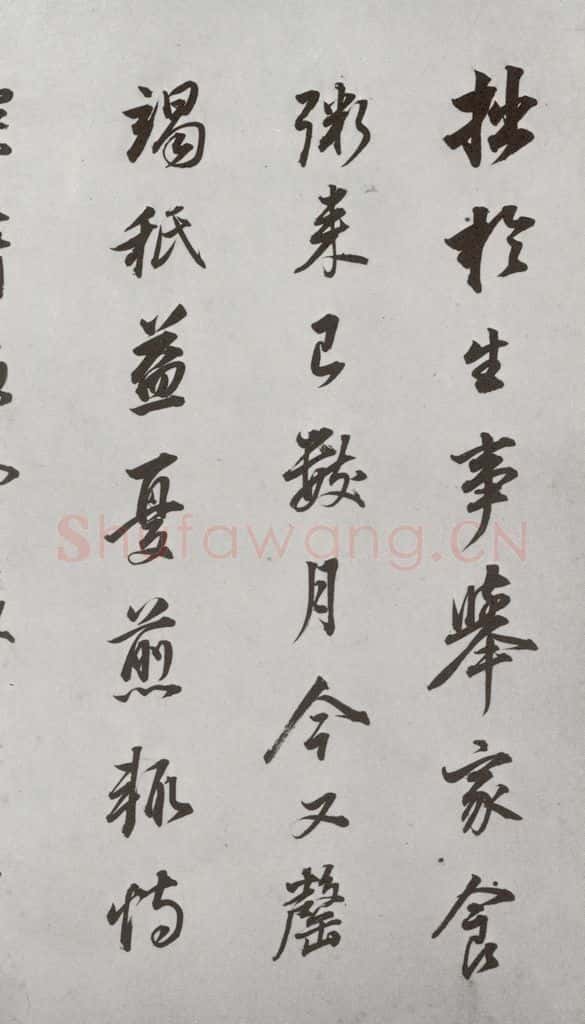 拙於生事舉家食
粥来已數月今又罄
竭秖益憂煎輒恃
Shufawang.CN